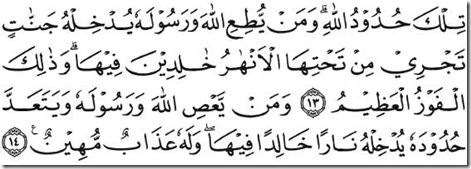 تِلْكَ حُدُوْدُ اللّٰهِ ۗ وَمَنْ يُّطِعِ اللّٰهَ وَرَسُوْلَهٗ يُدْخِلْهُ جَنّٰتٍ
تَجْرِيْ مِنْ تَحْتِهَا الْاَنْهٰرُ خٰلِدِيْنَ فِيْهَا ۗ وَذٰلِكَ
الْفَوْزُ الْعَظِيْمُ ١٣ وَمَنْ يَّعْصِ اللّٰهَ وَرَسُوْلَهٗ وَيَتَعَدَّ
حُدُوْدَهٗ يُدْخِلْهُ نَارًا خَالِدًا فِيْهَا ۖ وَلَهٗ عَذَابٌ مُّهِيْنٌ ࣖ ١٤